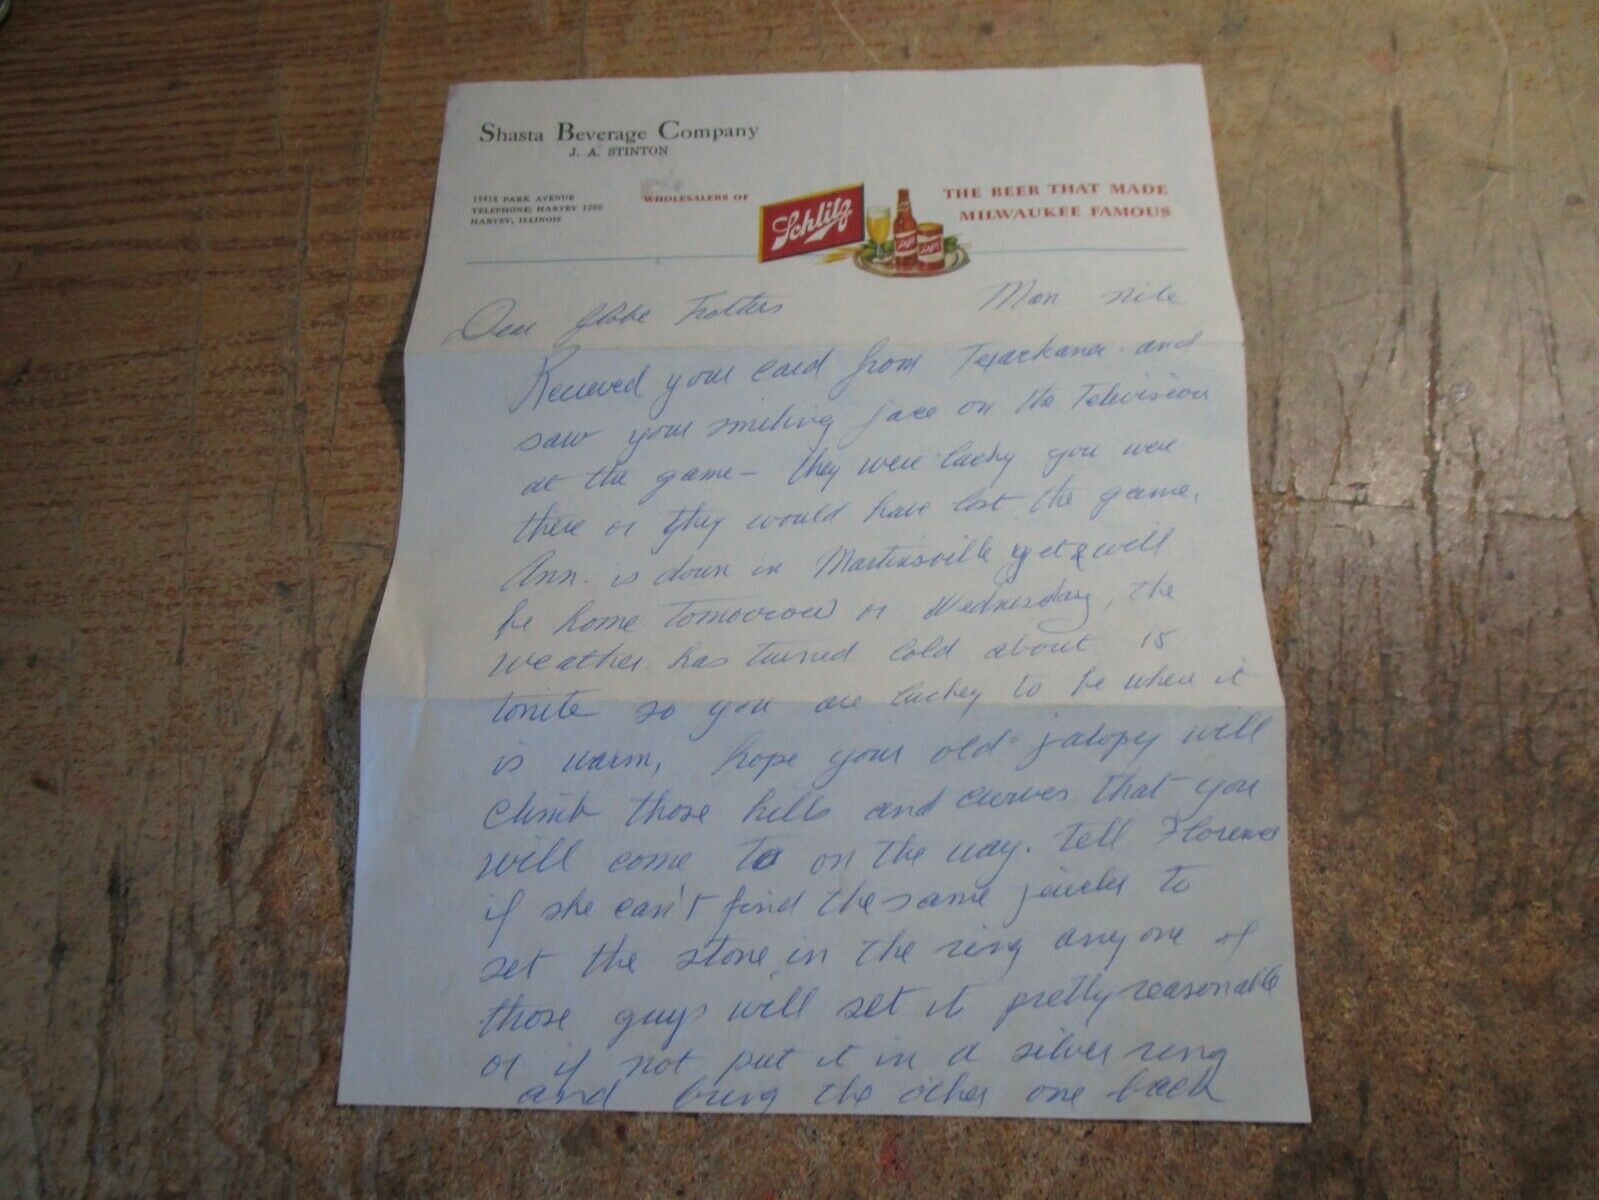 Shasta Beverage Company
J. A. STINTON
15418 PARK AVENUE
TELEPHONE: HARVEY 1200
HARVEY, ILLINOIS
WHOLESALERS OF
Schlitz
THE BEER THAT MADE
MILWAUKEE FAMOUS
Mon nite
Dear Globe Trotters
Received your card from Texarkana and
saw your smiling face on the Television
at the game - they were lucky you were
there or they would have lost the game.
Ann. is down in Martinsville yet & will
be home tomorrow or Wednesday, the
weather has turned cold about 15
tonite so you are luckey to be where it
is warm, hope your old jalopy will
climb those hills and curves that you
will come to on the way. tell Florence
if she can't find the same jeweler to
set the stone in the ring any one of
those guys will set it pretty reasonable
or if not put it in a silver ring
and bring the other one back